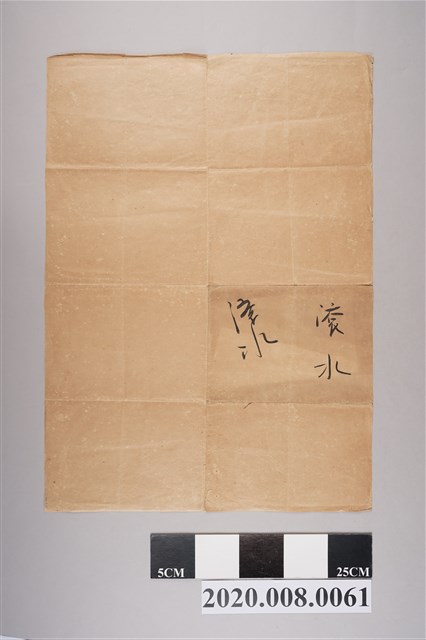 滚水
滚水
5CM
25CM
2020.008.0061